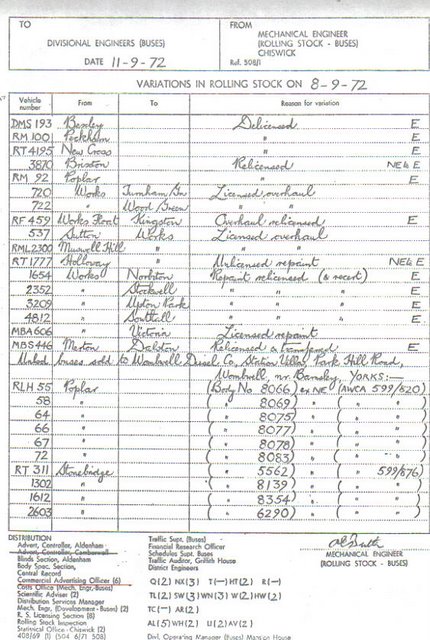 TO
DIVISIONAL ENGINEERS (BUSES)
DATE 11-9-72
FROM
MECHANICAL ENGINEER
(ROLLING STOCK - BUSES)
CHISWICK
Ref. 508/1
VARIATIONS IN ROLLING STOCK ON 8-9-72
Vehicle number From To Reason for variation
DMS 193 Bexley Delicensed E
RM 1001 Peckham " E
RT 4195 New Cross " E
3870 Brixton Relicensed NE & E
RM 92 Poplar " E
720 Works Turnham Gn Licensed overhaul
722 " Wood Green " "
RF 459 Works Float Kingston Overhaul relicensed E
537 Sutton Works Licensed overhaul
RML 2300 Muswell Hill " " "
RT 1777 Holloway " Unlicensed repaint NE & E
1654 Works Norbiton Repaint relicensed (& recert) E
2352 " Stockwell " " " E
3209 " Upton Park " " " E
4812 " Southall " " " E
MBA 606 " Victoria Licensed repaint
MBS 446 Merton Dalston Relicensed & transferred E
Unlicd buses sold to Wombwell Diesel Co, Station Villas, Park Hill Road,
Wombwell, nr. Barnsley, YORKS:—
RLH 55 Poplar (Body No 8066) ex NE (AWCA 599/520)
58 ( " 8069) " ( " " )
64 ( " 8075) " ( " " )
66 ( " 8077) " ( " " )
67 ( " 8078) " ( " " )
72 ( " 8083) " ( " " )
RT 311 Stonebridge ( " 5562) " ( " 599/576)
1302 " ( " 8139) " ( " " )
1612 " ( " 8354) " ( " " )
2603 " ( " 6290) " ( " " )
DISTRIBUTION
Advert. Controller, Aldenham
Advert. Controller, Camberwell
Blinds Section, Aldenham
Body Spec. Section,
Central Record
Commercial Advertising Officer (6)
Costs Office (Mech. Engr. Buses)
Scientific Adviser (2)
Distribution Services Manager
Mech. Engr, (Development - Buses) (2)
R. S. Licensing Section (8)
Rolling Stock Inspection
Statistical Office - Chiswick (2)
408/69 (1) (504 6/71 508)
Traffic Supt. (Buses)
Financial Research Officer
Schedules Supt. Buses
Traffic Auditor, Griffith House
District Engineers
Q(2) NX(3) T(—) HT(2) R(—)
TL(2) SW(3) WN(3) W(2) HW(2)
TC(—) AR(2)
AL(5) WH(2) U(2) AV(2)
Divl. Operating Manager (Buses) Mansion House
MECHANICAL ENGINEER
(ROLLING STOCK - BUSES)